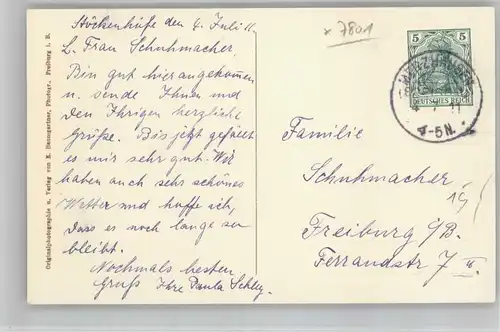 Originalphotographie u. Verlag von E. Baumgartner, Photogr., Freiburg i. B.
Stöckenhöfe den 4. Juli 11.
L. Frau Schuhmacher
Bin gut hier angekommen
u. sende Ihnen und
den Ihrigen herzliche
Grüße. Bis jetzt gefällt
es mir sehr gut. Wir
haben auch sehr schönes
Wetter und hoffe ich,
dass es noch lange so
bleibt.
Nochmals besten
Gruß Ihre Paula Schley.
x 7801
5 5
DEUTSCHES REICH
7 11
4-5N.
Familie
Schuhmacher
Freiburg i/B.
Ferrandstr 7 II.